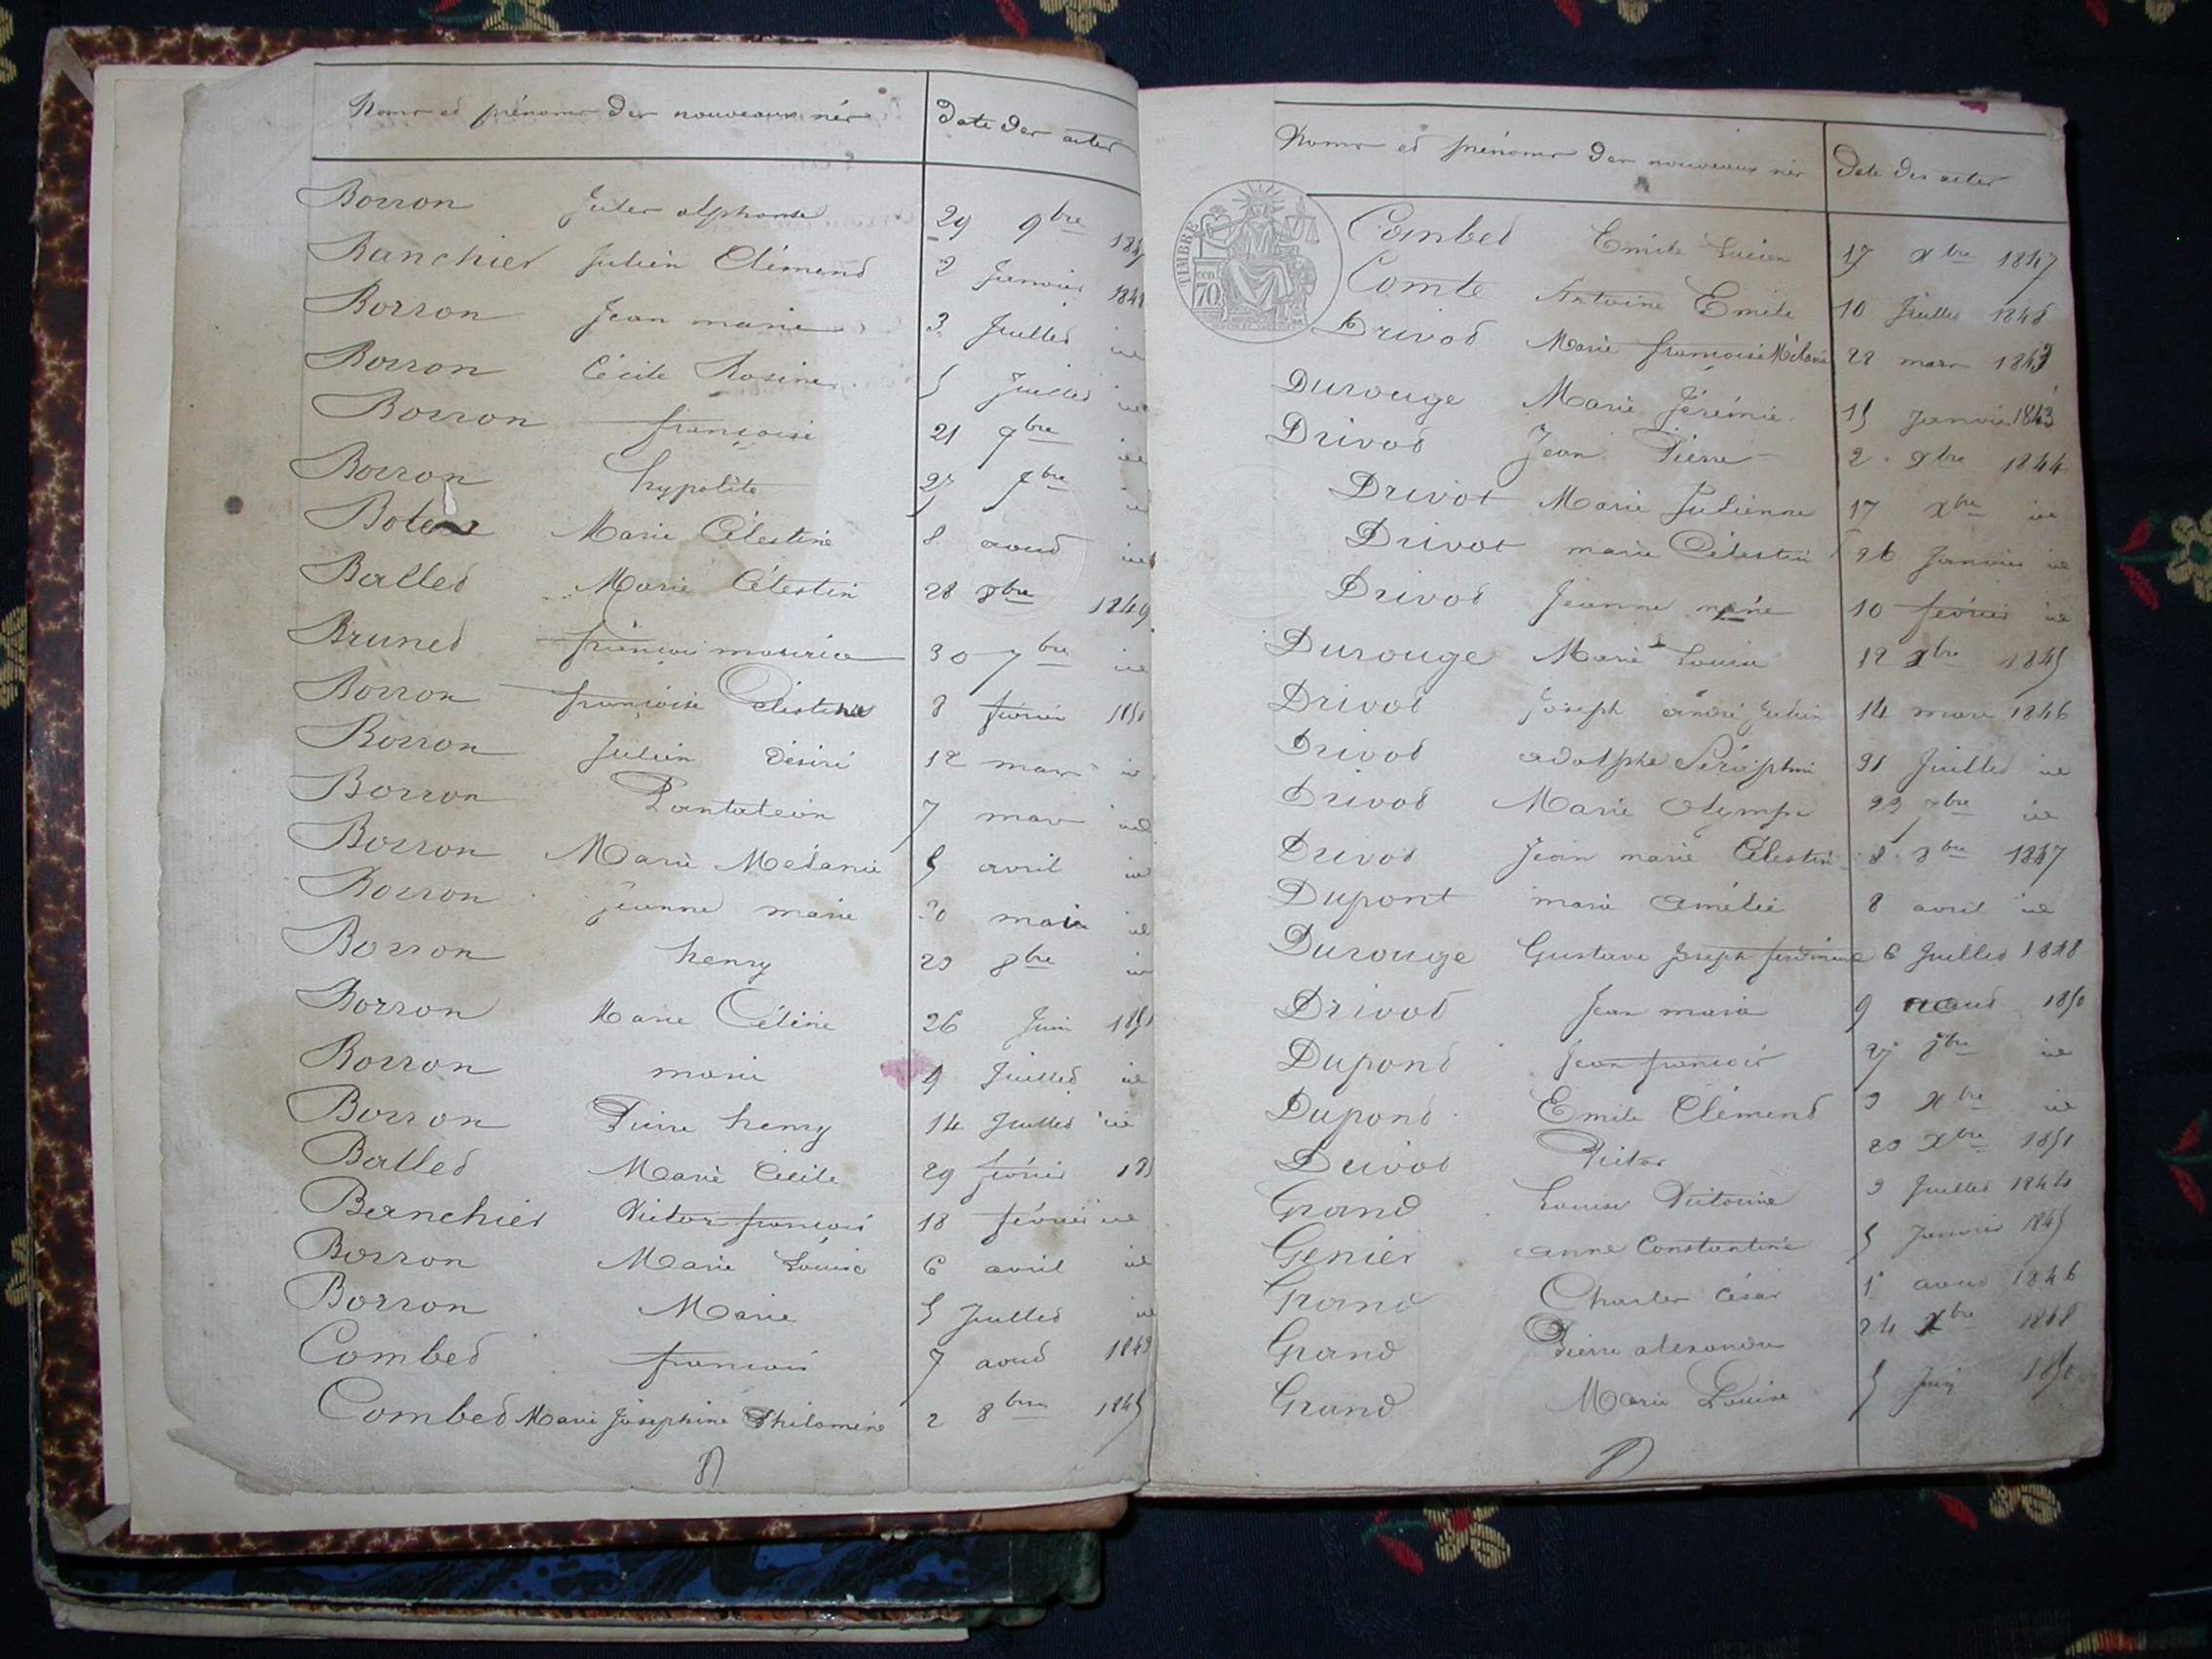 Noms et prénoms des nouveaux nés Date des actes
Borron Jules alphonse 29 9bre
Banchier Julien Clémend 2 Janvier
Borron Jean marie 3 Juilled id
Borron Cécile Rosine 5 Juilled id
Borron françoise 21 9bre id
Borron hypolite
Marie Célestine 8 aoud id
Balled Marie Célestin 28 8bre 1849
Bruned françois maurice 30 7bre id
Borron françoise Célestine 8 février 1850
Borron Julien Désiré 12 mars id
Borron Pantaléon 7 mars id
Borron Marie Mélanie 5 avril id
Borron jeanne marie 30 id
Borron henry 8bre id
Borron Marie Céline 26 Juin 1851
Borron marie 9 Juilled id
Borron Pierre henry 14 Juilled id
Balled Marie Cécile 29 février
Banchier Victor françois 18 février id
Borron Marie Louise 6 avril id
Borron Marie 5 Juilled id
Combed francois 7 aoud
Combed Marie Joséphine Philomène 2 8bre 1845
Noms et prénoms des nouveaux nés Date des actes
TIMBRE
70 cen
Combed Emile Lucien 17 xbre 1847
Comte Antoine Emile 10 Juilled 1848
Drivod Marie françoise Mélanie 28 mars 1843
Durouge Marie Jérémie 15 Janvier 1843
Drivod Jean Pierre 2 1844
Drivot Marie Julienne 17 xbre id
Drivot marie Célestin 26 Janvier id
Drivod Jeanne 10 février id
Durouge Marie Louise 12 xbre 1845
Drivod Joseph andré Julien 14 mars 1846
Drivod adolphe Séraphin 31 Juilled id
Drivod Marie Olympe id
Drivod Jean marie Célestin 8bre 1847
Dupont marie Amélie 8 avril id
Durouge Gustave Joseph ferdinand 6 Juilled 1848
Drivod Jean marie 9 aoud 1850
Dupond Jean françois id
Dupond Emile Clémend xbre id
Drivod Victor 20 xbre 1851
Grand Louise Victorine Juilled 1844
Genier anne Constantine 5 Janvier 1845
Grand Charles César aoud 1846
Grand Pierre alexandre 24 xbre 1848
Grand Marie Louise 5 Juin 1850